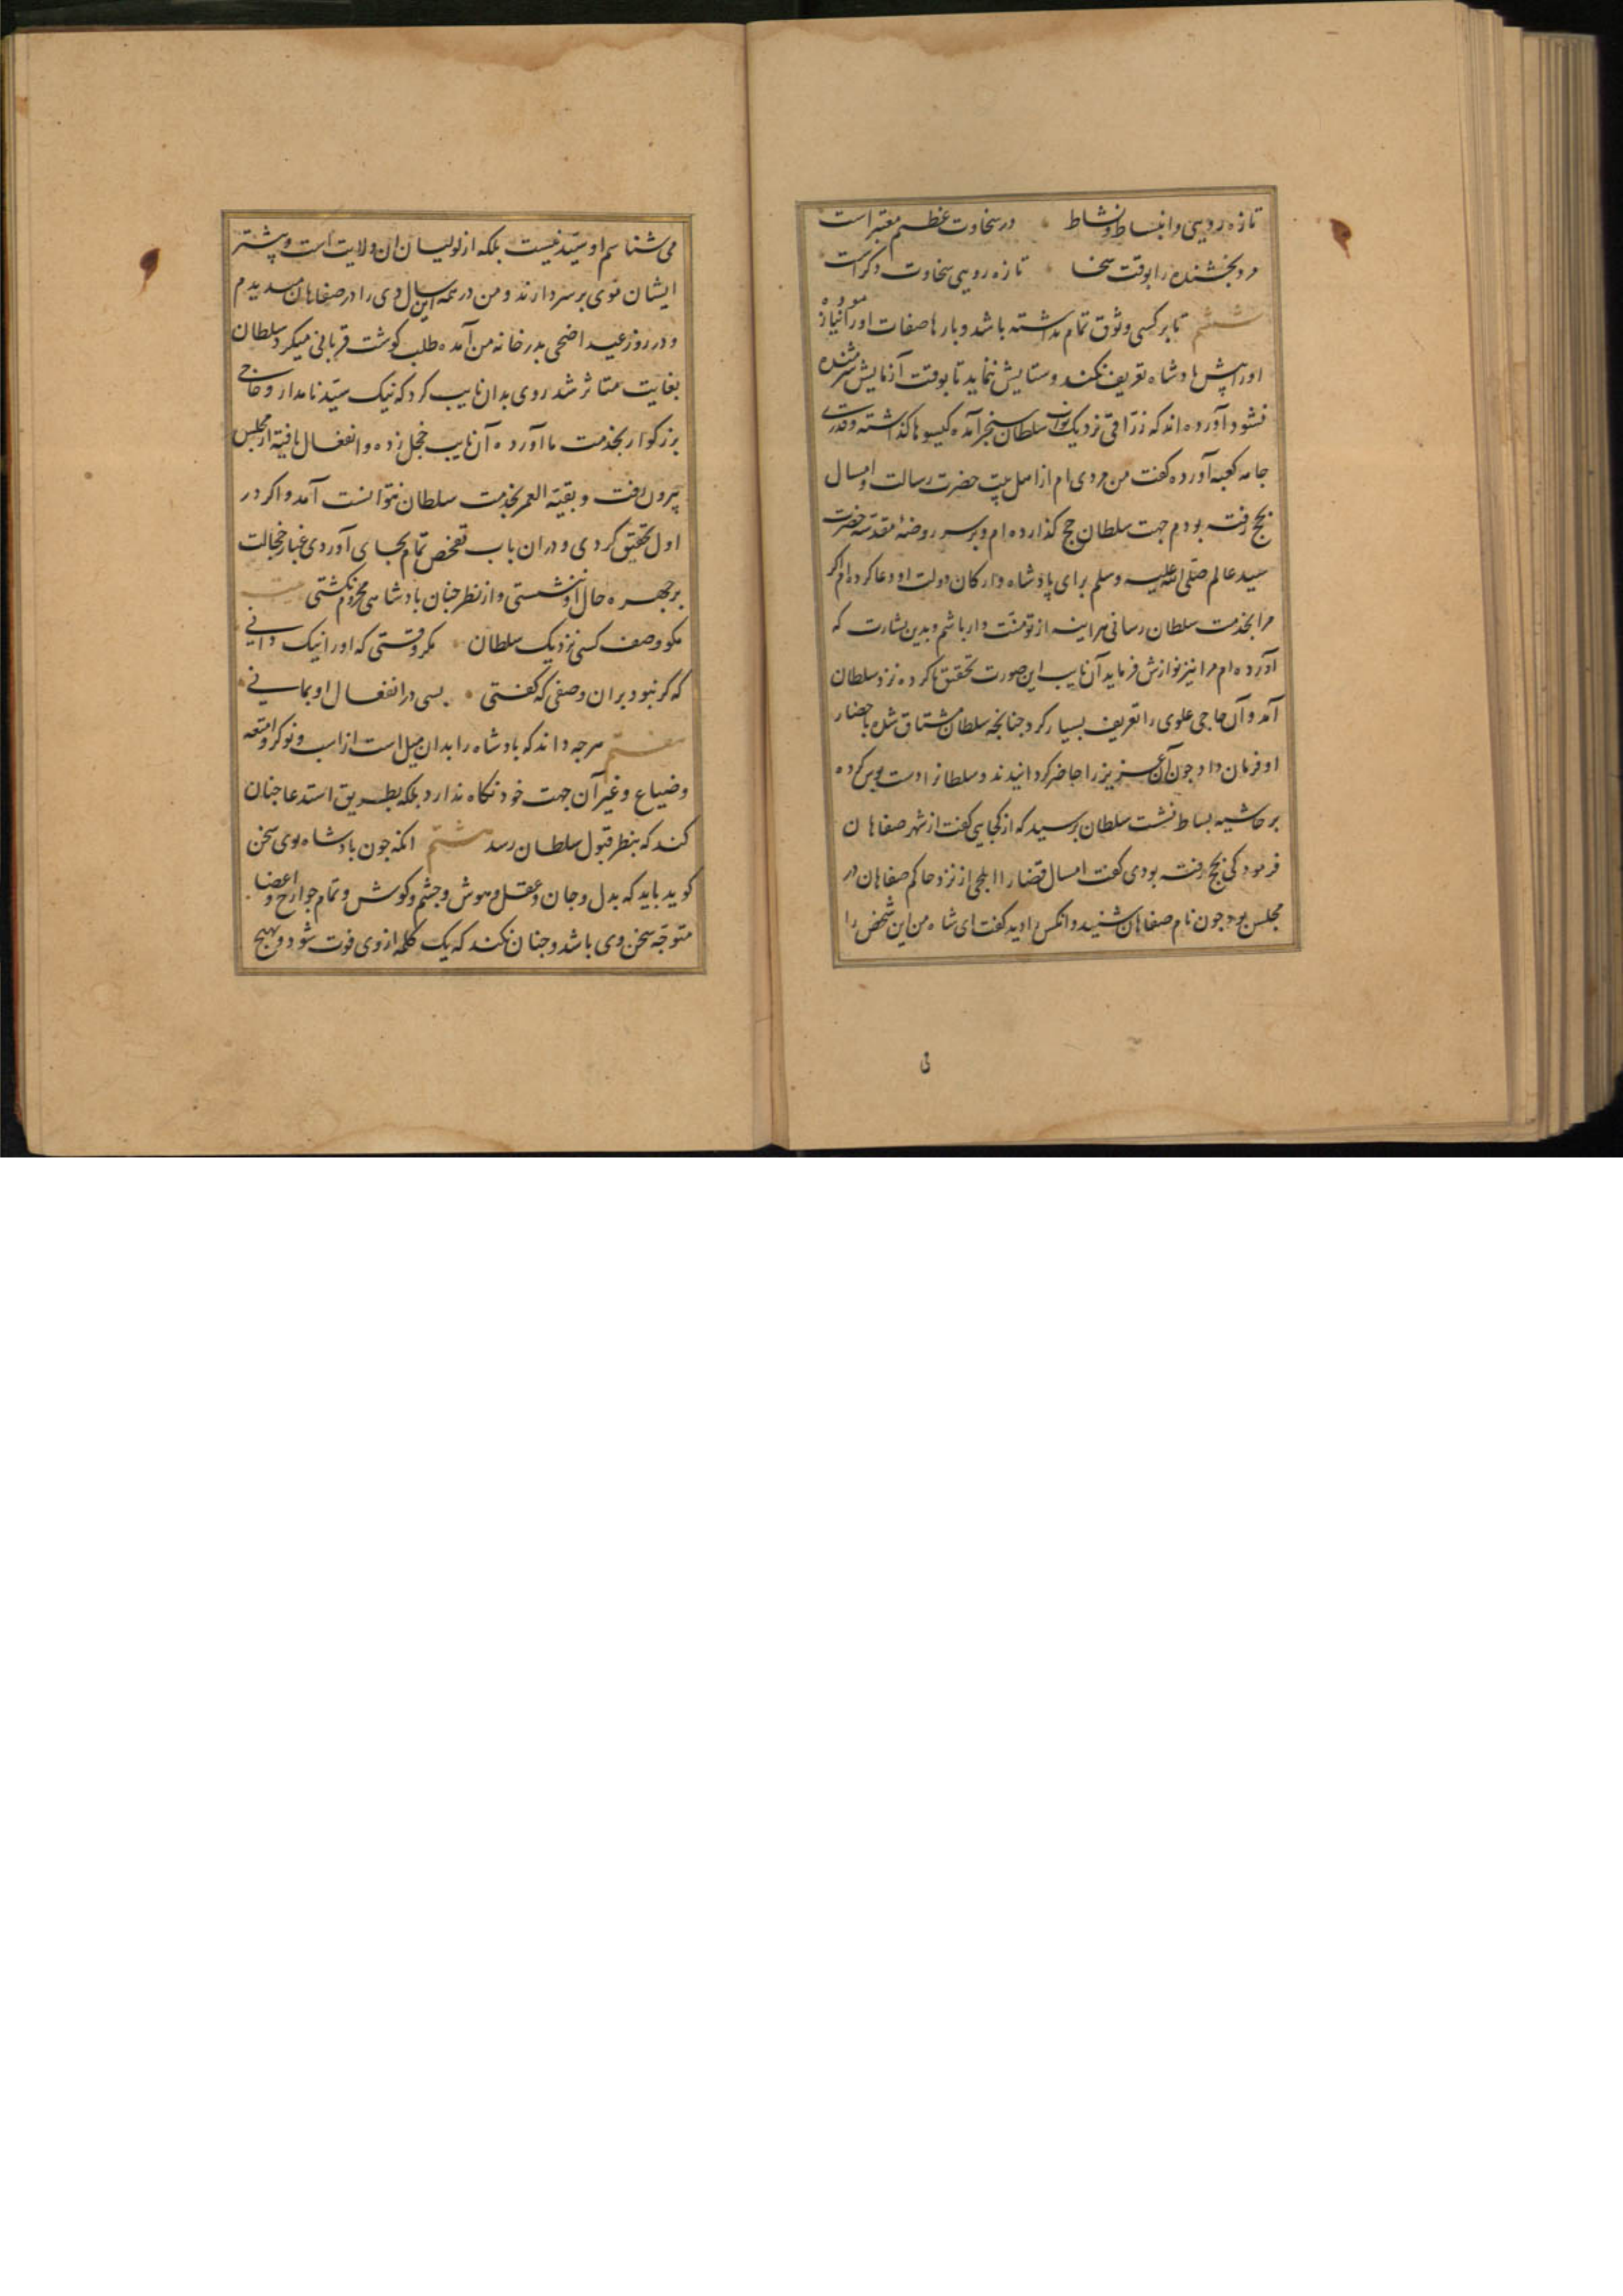 تازه رویی و انبساط و نشاط در سخاوت عظیم معتبر است
مرد بخشنده را بوقت سخا تازه رویی سخاوت دکرست
ششم تا بر کسی وثوق تمام نداشته باشد و بارها صفات او را نیازموده
او را پیش پادشاه تعریف نکند و ستایش ننماید تا بوقت آزمایش شرمنده
نشود آورده اند که زراقی نزدیک نواب سلطان سنجر آمده کیسوها کذاشته و قدری
جامه کعبه آورده کفت من مردی ام از اهل بیت حضرت رسالت و امسال
بحج رفته بودم جهت سلطان حج کذارده ام و بر سر روضه مقدسه حضرت
سید عالم صلی الله علیه وسلم برای پادشاه و ارکان دولت او دعا کرده ام اکر
مرا بخدمت سلطان رسانی هر اینه از تو منت دار باشم و بدین بشارت که
آورده ام مرا نیز نوازش فرماید آن نایب این صورت تحقیق ناکرده نزد سلطان
آمد و آن حاجی علوی را تعریف بسیار کرد جنانجه سلطان مشتاق شده باحضار
او فرمان داد جون آن عزیز را حاضر کردانیدند و سلطانرا دست بوس کرده
بر حاشیه بساط نشست سلطان پرسید که از کجایی کفت از شهر صفاهان
فرمود کی بحج رفته بودی کفت امسال قضا را ایلجی از نزد حاکم صفاهان در
مجلس بود جون نام صفاهان شنید و انکس را دید کفت ای شاه من این شخص را
می
می شناسم او سید نیست بلکه از لولیان ان ولایت است و بیشتر
ایشان موی بر سر دارند و من در همه این سال وی را در صفاهان میدیدم
و در روز عید اضحی بدر خانه من آمده طلب کوشت قربانی میکرد سلطان
بغایت متاثر شد روی بدان نایب کرد که نیک سید نامدار و حاجی
بزرکوار بخدمت ما آورده آن نایب خجل زده و انفعال یافته از مجلس
بیرون رفت و بقیة العمر بخدمت سلطان نتوانست آمد و اکر در
اول تحقیق کردی و دران باب تفحص تمام بجای آوردی غبار خجالت
بر جهره حال او ننشستی و از نظر جنان پادشاهی محروم نکشتی بیت
مکو وصف کسی نزدیک سلطان مکر وقتی که او را نیک دانی
که کر نبود بران وصفی که کفتی بسی در انفعال او بمانی
هفتم هرجه داند که پادشاه را بدان میل است از اسب و نوکر و امتعه
و ضیاع و غیر آن جهت خود نکاه ندارد بلکه بطریق استدعا جنان
کند که بنظر قبول سلطان رسد هشتم انکه جون پادشاه بوی سخن
کوید باید که بدل و جان و عقل و هوش و جشم و کوش و تمام جوارح و اعضا
متوجه سخن وی باشد و جنان نکند که یک کلمه از وی فوت شود و بهیج